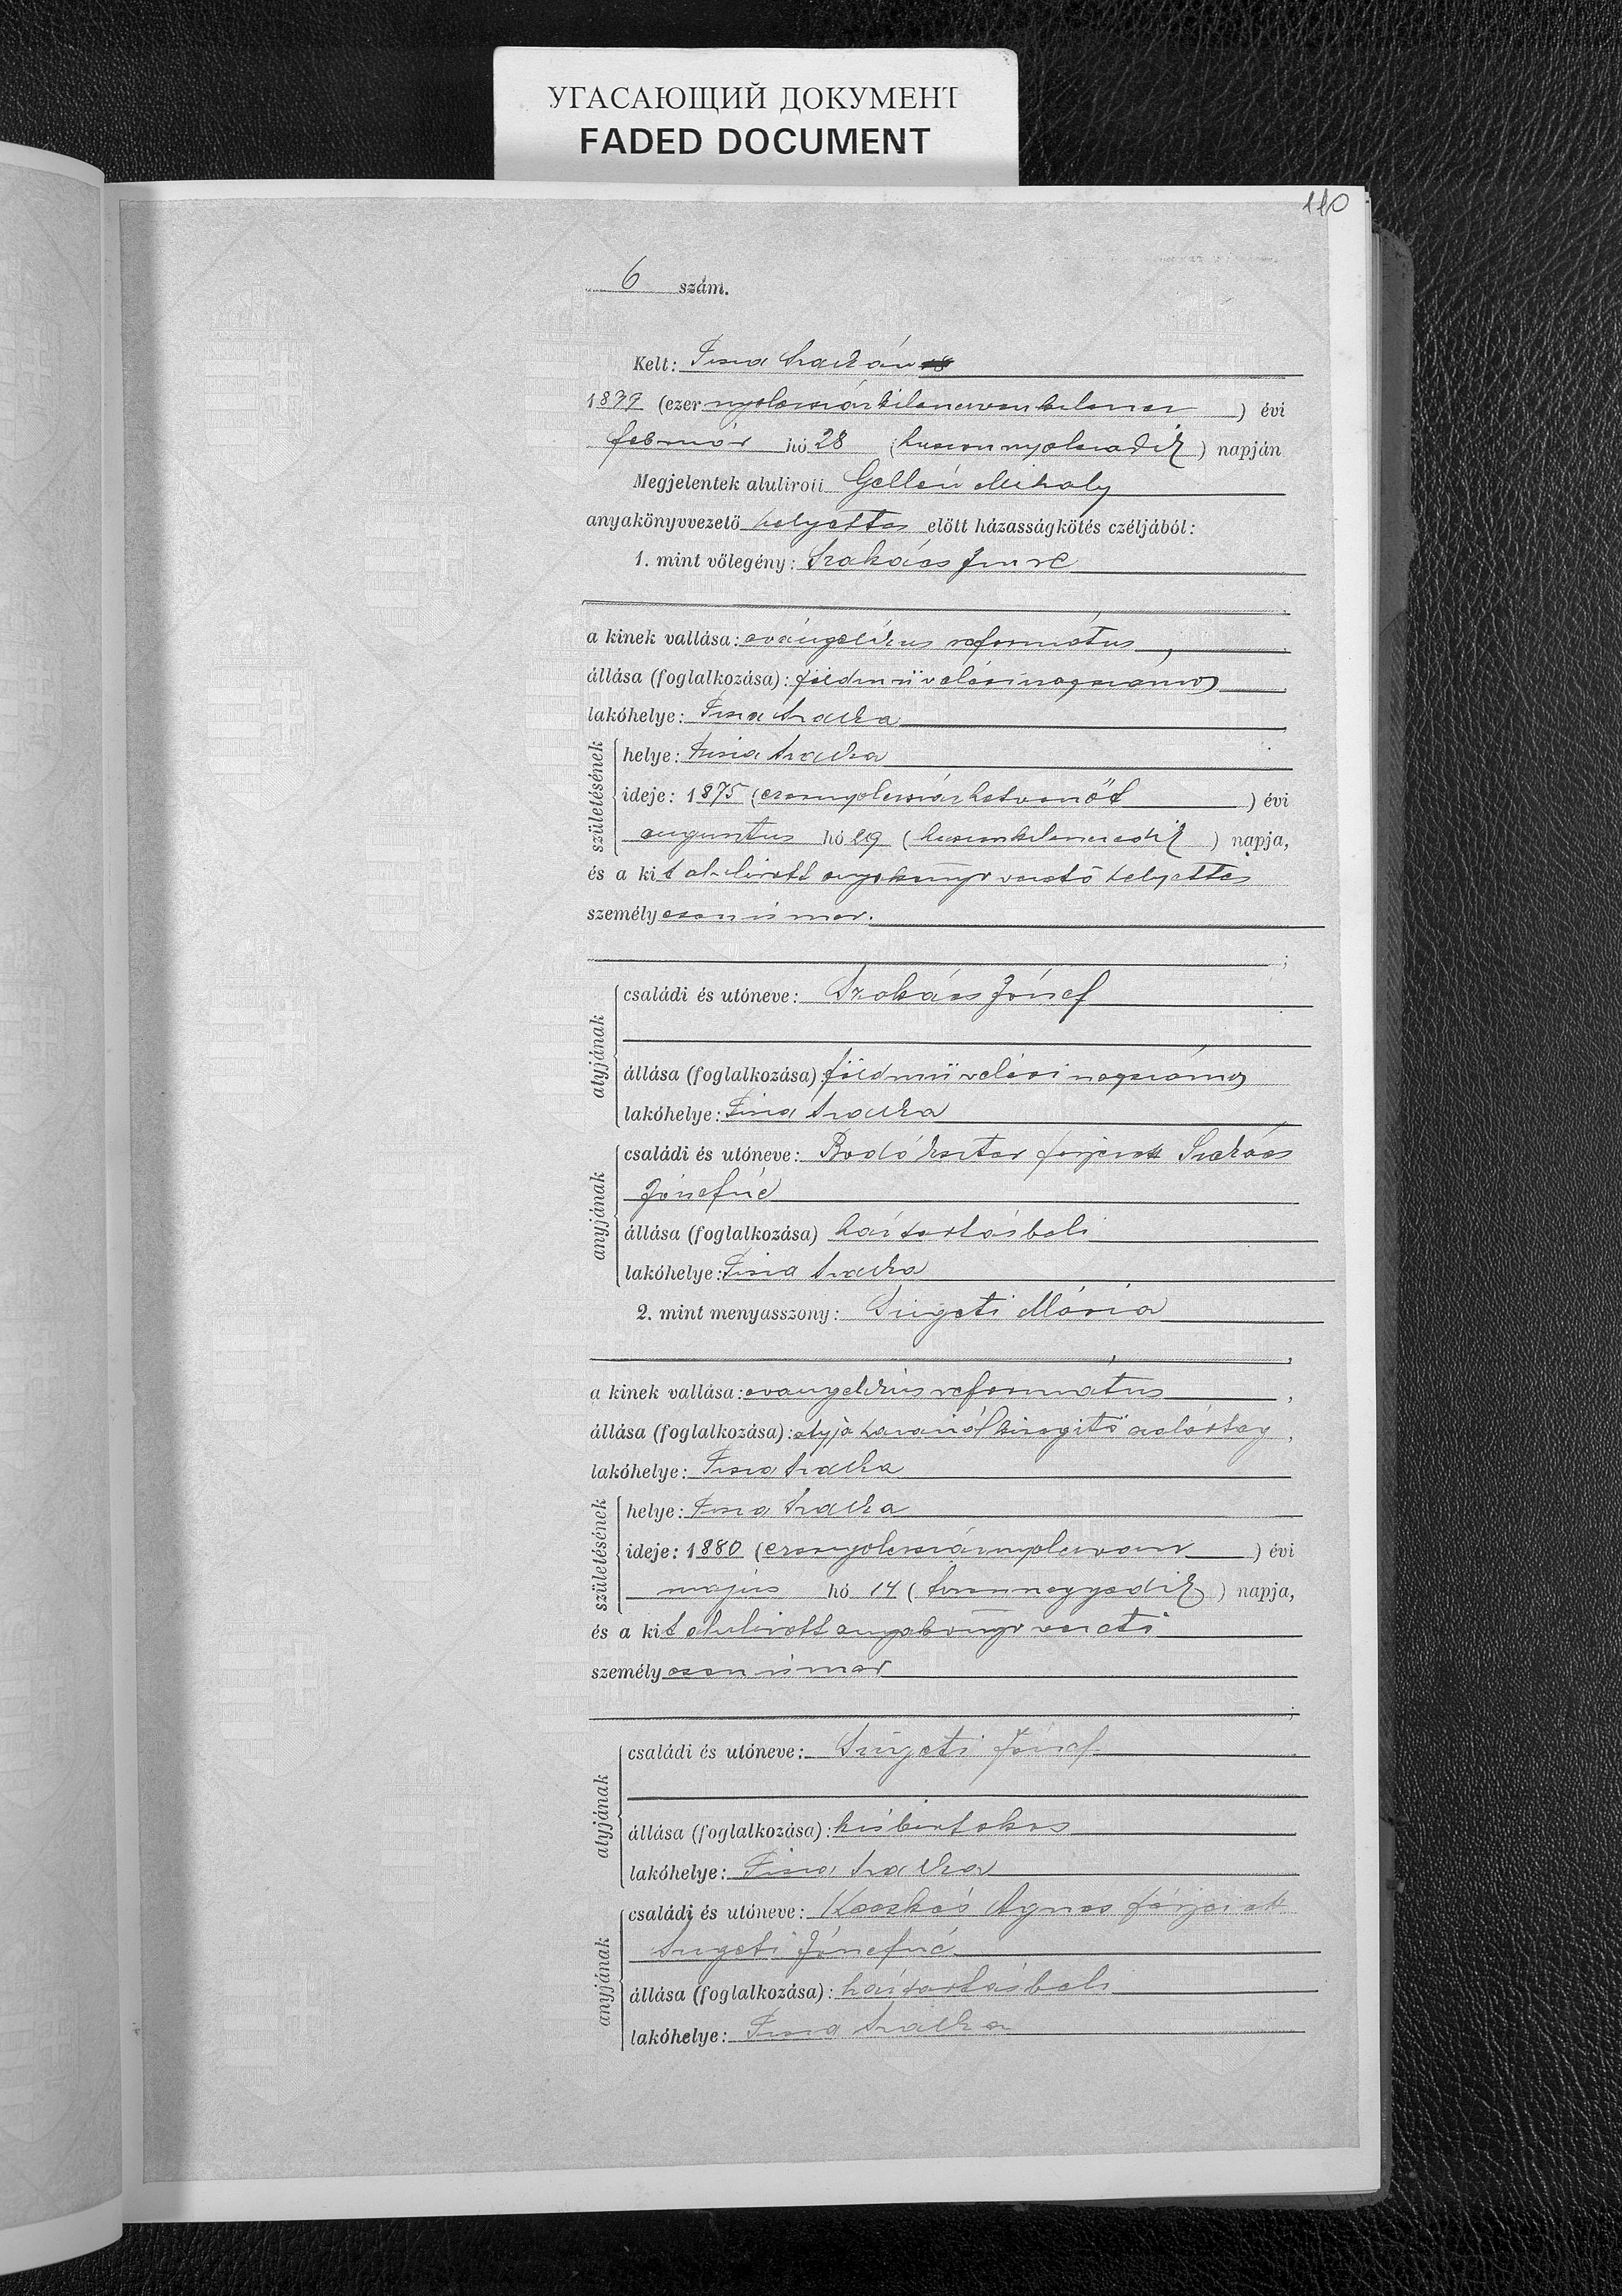 УГАСАЮЩИЙ ДОКУМЕНТ
FADED DOCUMENT
110
6 szám.
Kelt: Tisza Szalkán
1899 (ezer nyolcszázkilencvenkilencz) évi
február hó 28 (huszonnyolczadik) napján
Megjelentek alulirott Gellén Mihaly
anyakönyvvezető helyettes előtt házasságkötés czéljából:
1. mint vőlegény: Szakács Imre
a kinek vallása: evángelikus református,
állása (foglalkozása): földmüvelési napszámos
lakóhelye: Tisza Szalka
születésének
helye: Tisza Szalka
ideje: 1875 (ezernyolcszázhetvenöt) évi
augusztus hó 29 (huszonkilenczedik) napja,
és a kit alulirott anyakönyv vezető helyettes
személyesen ismer.
;
atyjának
családi és utóneve: Szakács József
állása (foglalkozása): földmüvelési napszámos
lakóhelye: Tisza Szalka
anyjának
családi és utóneve: Bodó Eszter férjezett Szakács
Józsefné
állása (foglalkozása) háztartásbeli
lakóhelye: Tisza Szalka
2. mint menyasszony: Szigeti Mária
,
a kinek vallása: evangelikus református,
állása (foglalkozása): atyja házánál kisegitő családtag,
lakóhelye: Tisza Szalka
születésének
helye: Tisza Szalka
ideje: 1880 (ezernyolcszáznyolczvan) évi
május hó 14 (tizennegyedik) napja,
és a kit alulirott anyakönyv vezető
személyesen ismer
;
atyjának
családi és utóneve: Szigeti József
állása (foglalkozása): kisbirtokos
lakóhelye: Tisza Szalka
anyjának
családi és utóneve: Agnes férjezett
Szigeti Józsefné
állása (foglalkozása): háztartásbeli
lakóhelye: Tisza Szalka